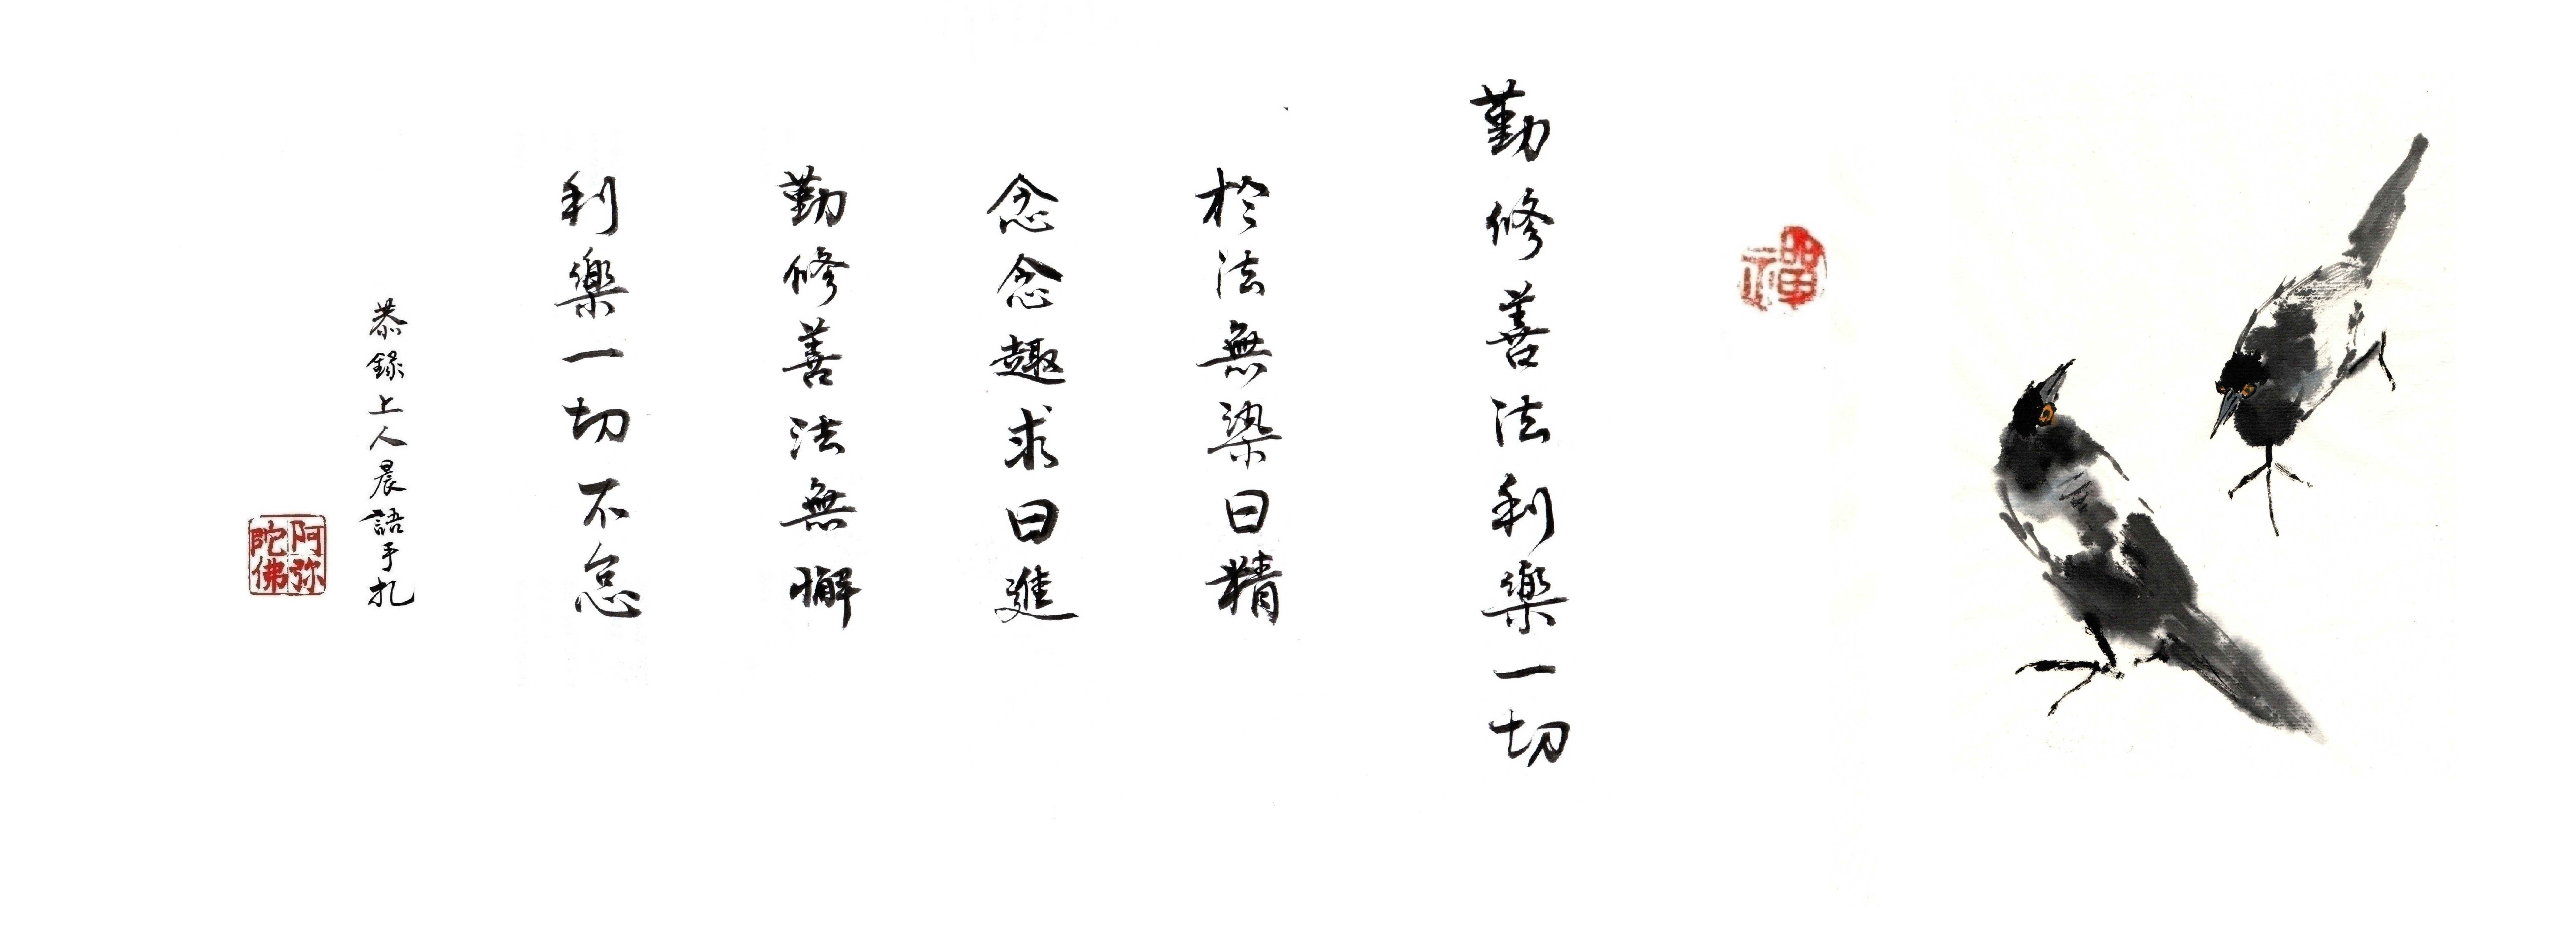 禪
勤修善法利樂一切
於法無染曰精
念念趣求曰進
勤修善法無懈
利樂一切不怠
恭錄上人晨語手扎
阿弥陀佛